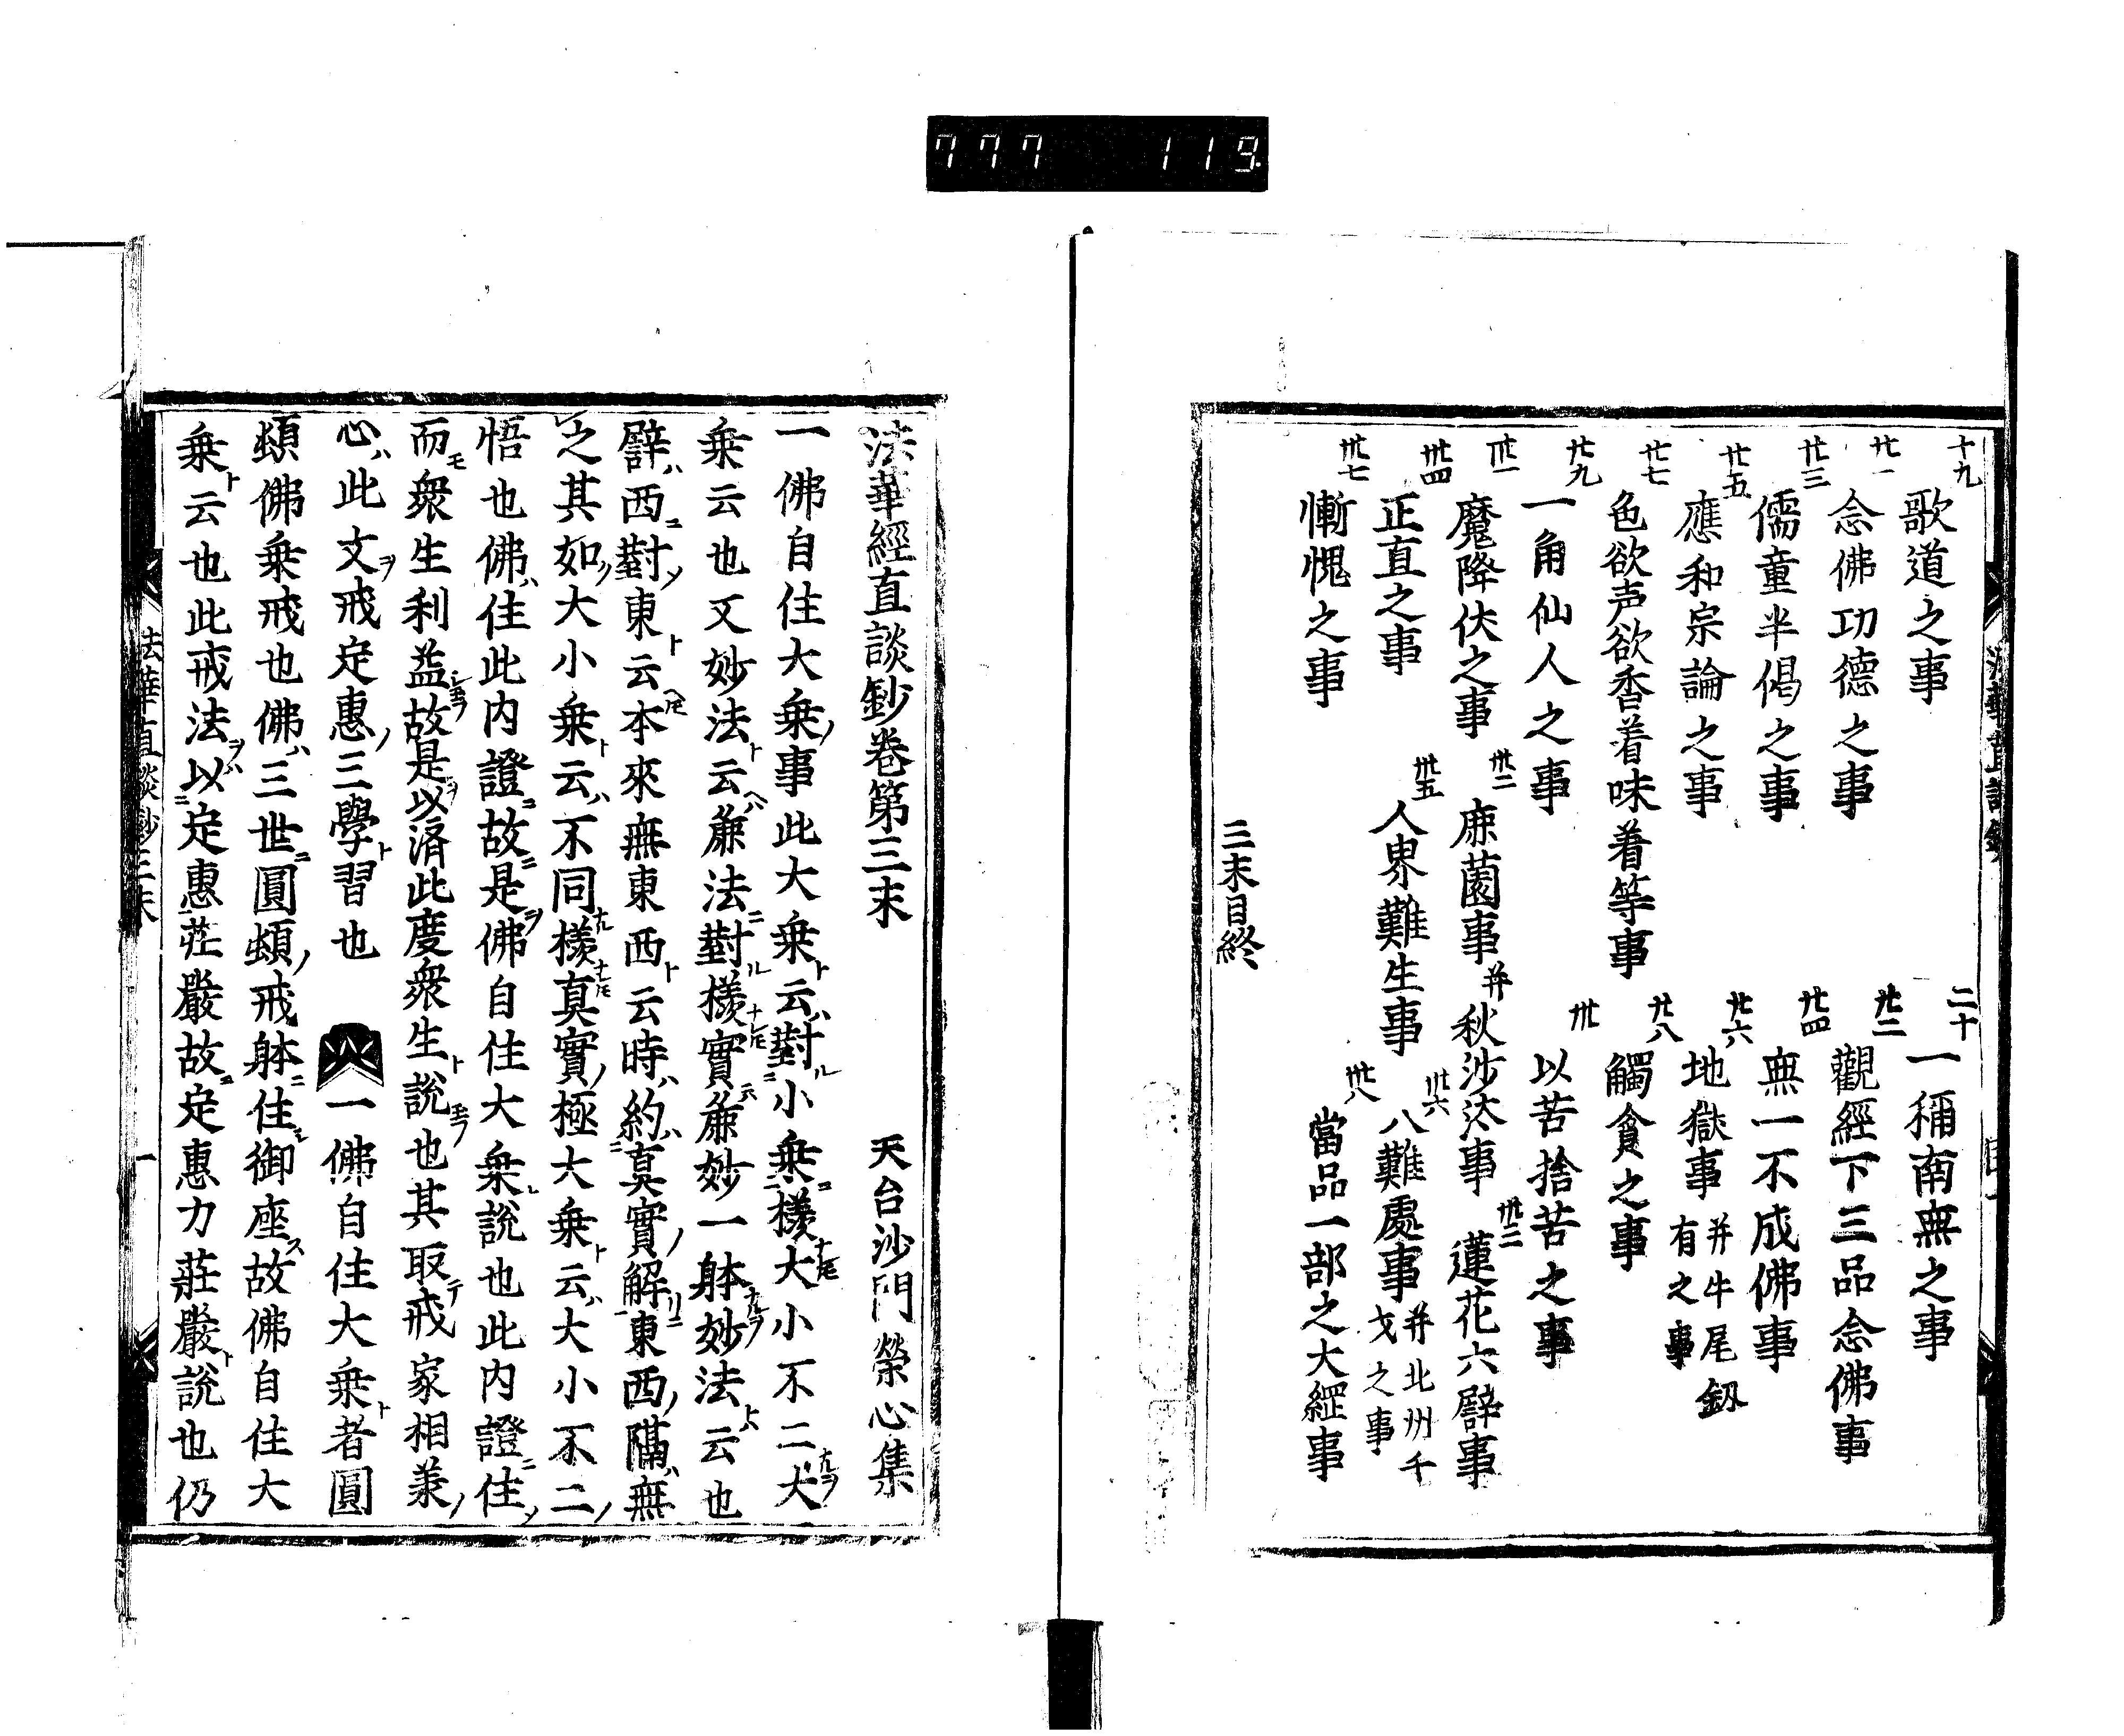 777 119
十九 歌道之事 二十 一稱南無之事
廿一 念佛功德之事 廿二 觀經下三品念佛事
廿三 儒童半偈之事 廿四 無一不成佛事
廿五 應和宗論之事 廿六 地獄事 并牛尾釼有之事
廿七 色欲声欲香着味着等事 廿八 觸貪之事
廿九 一角仙人之事 卅 以苦捨苦之事
卅一 魔降伏之事 卅二 鹿薗事 并秋沙汰事 卅三 蓮花六譬事
卅四 正直之事 卅五 人界難生事 卅六 八難處事 并北州千戈之事
卅七 慚愧之事 卅八 當品一部之大綱事
三末目終
法華經直談鈔卷第三末 天台沙門榮心集
一佛自住大乗ノ事此大乗ト云ハ對ル小乗ニ様ナレ𪜈大小不二ナルヲ大
乗云也又妙法ト云ヘハ麁法ニ對ル様ナレ𪜈實ニハ麁妙一躰ナルヲ妙法ト云也
譬ハ西ニ對ノ東ト云ヘ𪜈本來無東西ト云時ハ約ハ真實ノ解リニ東西ノ隔ハ無
之其如ノ大小乗ト云ハ不同様ナレ𪜈真實ノ極大乗ト云ハ大小不二ノ
悟也佛ハ住此内證ニ故ニ是ヲ佛自住大乗ト說也此内證ニ住ソ
而モ衆生利益シ玉フ故是ヲ以濟此度衆生ト說玉フ也其取テ戒家相兼ノ
心ハ此文ヲ戒定惠ノ三學ト習也 一佛自住大乗ト者圓
頓佛乗戒也佛ハ三世ニ圓頓ノ戒躰ニ住シ御座ス故佛自住大
乗ト云也此戒法ヲハ以ニ定惠莊嚴故ニ定惠力莊嚴ト說也仍
法華直談鈔三末 一